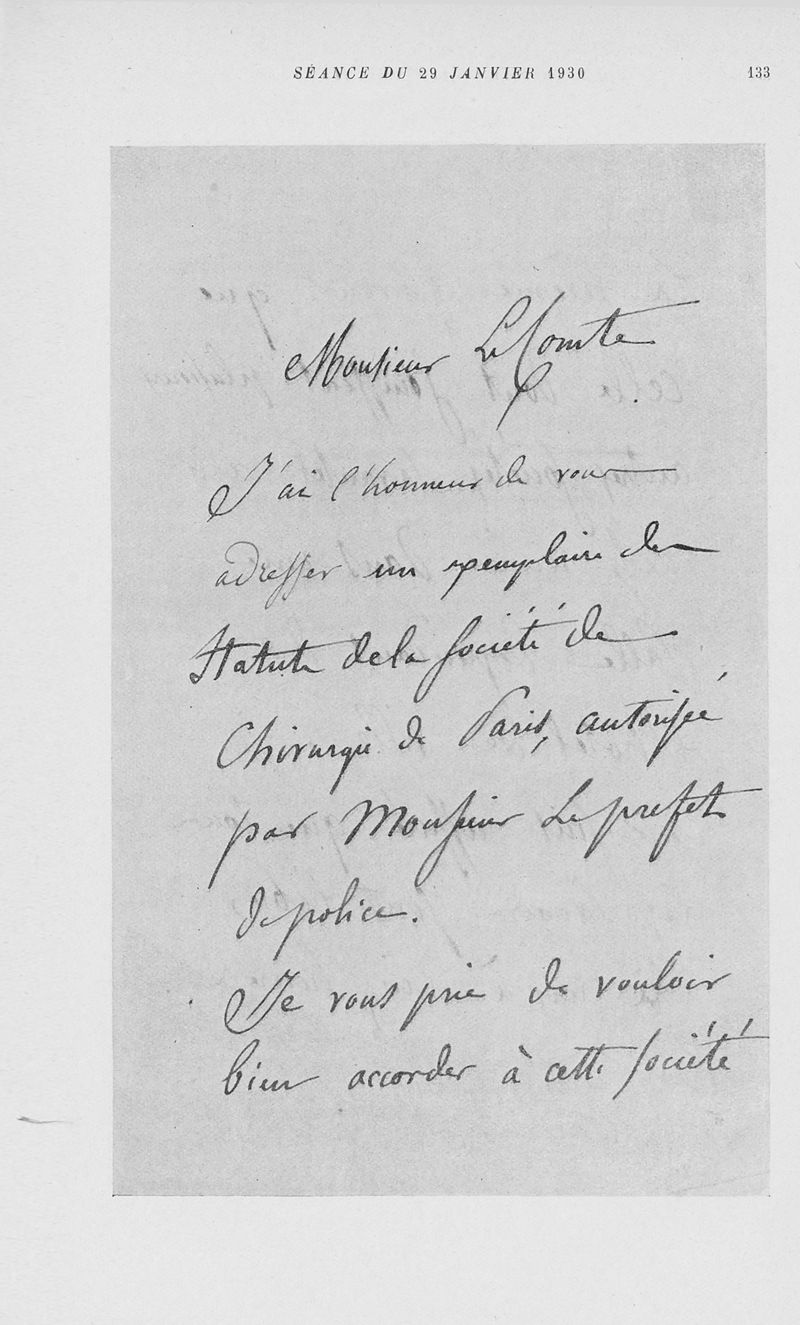 SÉANCE DU 29 JANVIER 1930
133
Monsieur Le Comte
J'ai l'honneur de vous
adresser un exemplaire des
Statuts de la Société de
Chirurgie de Paris, autorisée
par Monsieur Le prefet
de police.
Je vous prie de vouloir
bien accorder à cette société